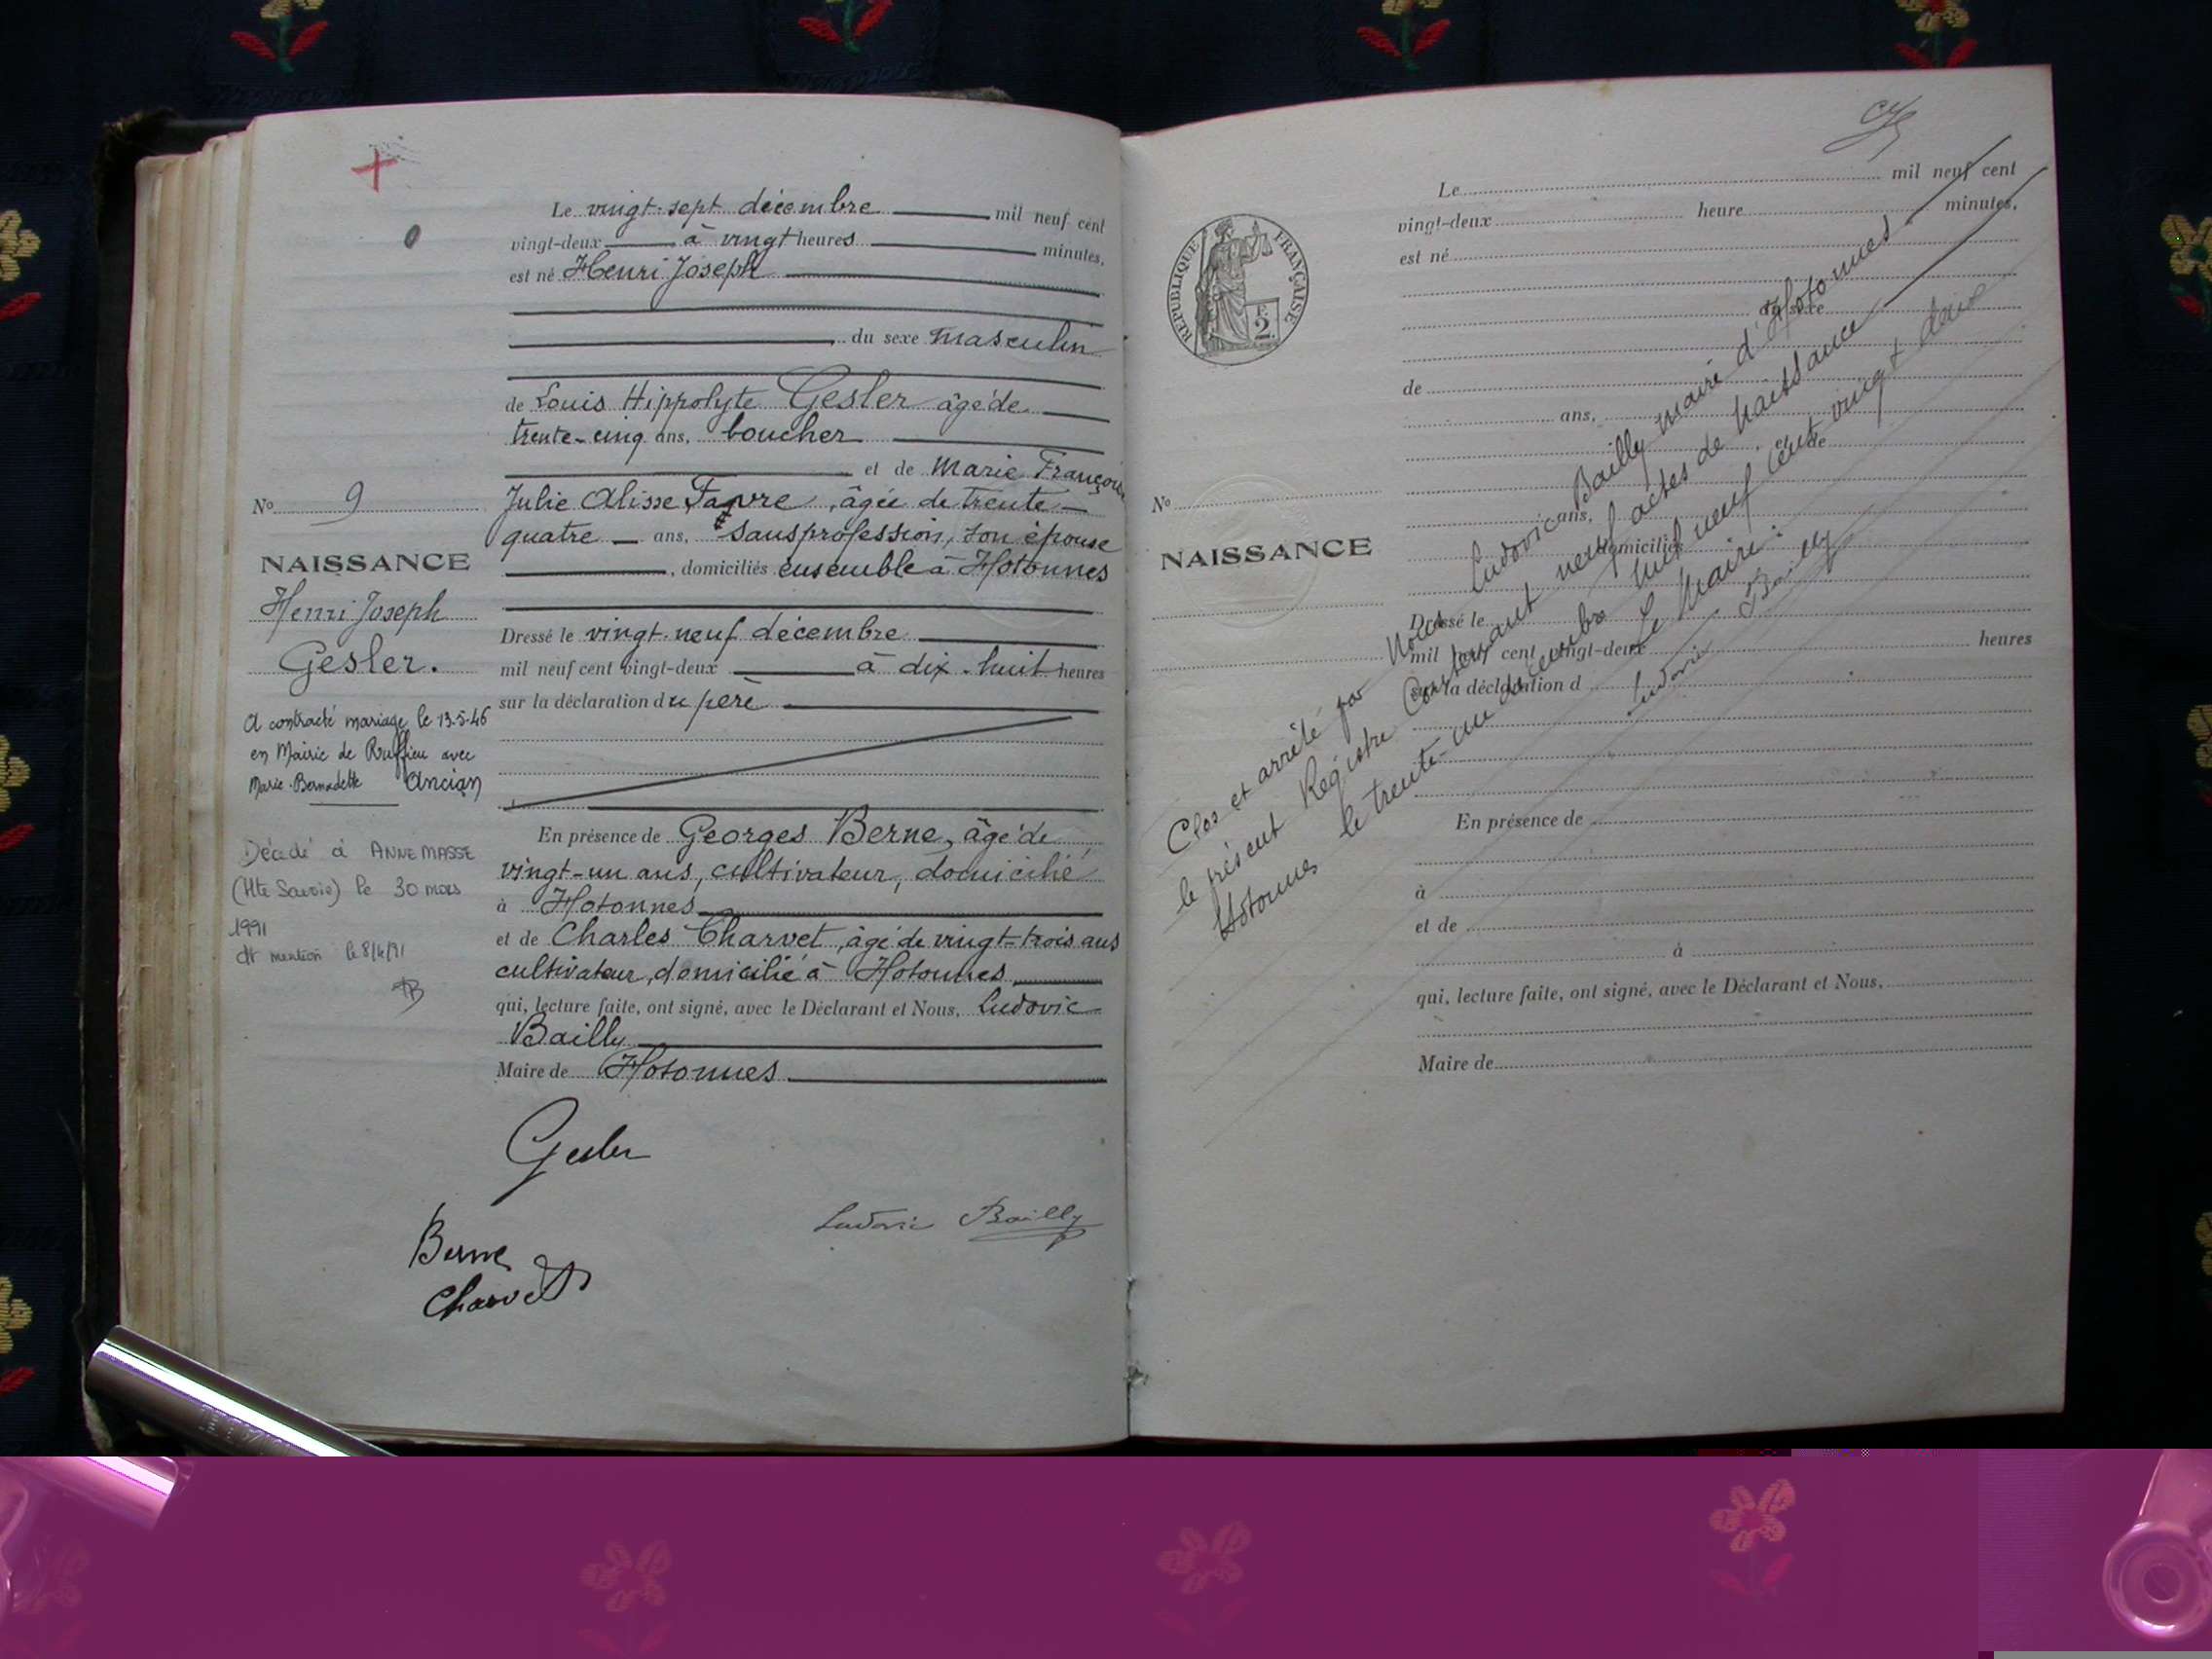 Le vingt-sept décembre mil neuf cent
vingt-deux à vingt heures minutes,
est né Henri Joseph
du sexe masculin
de Louis Hippolyte Gesler âgé de
trente-cinq ans, boucher
et de Marie Françoise
Julie Alisse Favre, âgée de trente-
quatre ans, sans profession, son épouse
, domiciliés ensemble à Hotonnes
Dressé le vingt-neuf décembre
mil neuf cent vingt-deux à dix-huit heures
sur la déclaration du père
En présence de Georges Berne, âgé de
vingt-un ans, cultivateur, domicilié
à Hotonnes
et de Charles Charvet, âgé de vingt-trois ans
cultivateur, domicilié à Hotonnes
qui, lecture faite, ont signé, avec le Déclarant et Nous, Ludovic
Bailly
Maire de Hotonnes
Gesler
Berne
Charvet
Ludovic Bailly
No 9
NAISSANCE
Henri Joseph
Gesler.
A contracté mariage le 13-5-46
en Mairie de Ruffieu avec
Marie-Bernadette Ancian
Décédé à ANNEMASSE
(Hte Savoie) le 30 mars
1991
mention le 8/4/91
RÉPUBLIQUE FRANÇAISE
F.
2
No
NAISSANCE
Le mil neuf cent
vingt-deux heure minutes,
est né
du sexe
de
ans,
et de
ans,
domiciliés
Dressé le
mil neuf cent vingt-deux heures
sur la déclaration d
En présence de
à
et de
à
qui, lecture faite, ont signé, avec le Déclarant et Nous,
Maire de
Clos et arrêté par Nous Ludovic Bailly maire d'Hotonnes
le présent Registre Contenant neuf actes de Naissance
Hotonnes le trente-un décembre mil neuf cent vingt deux
Le Maire:
Ludovic Bailly